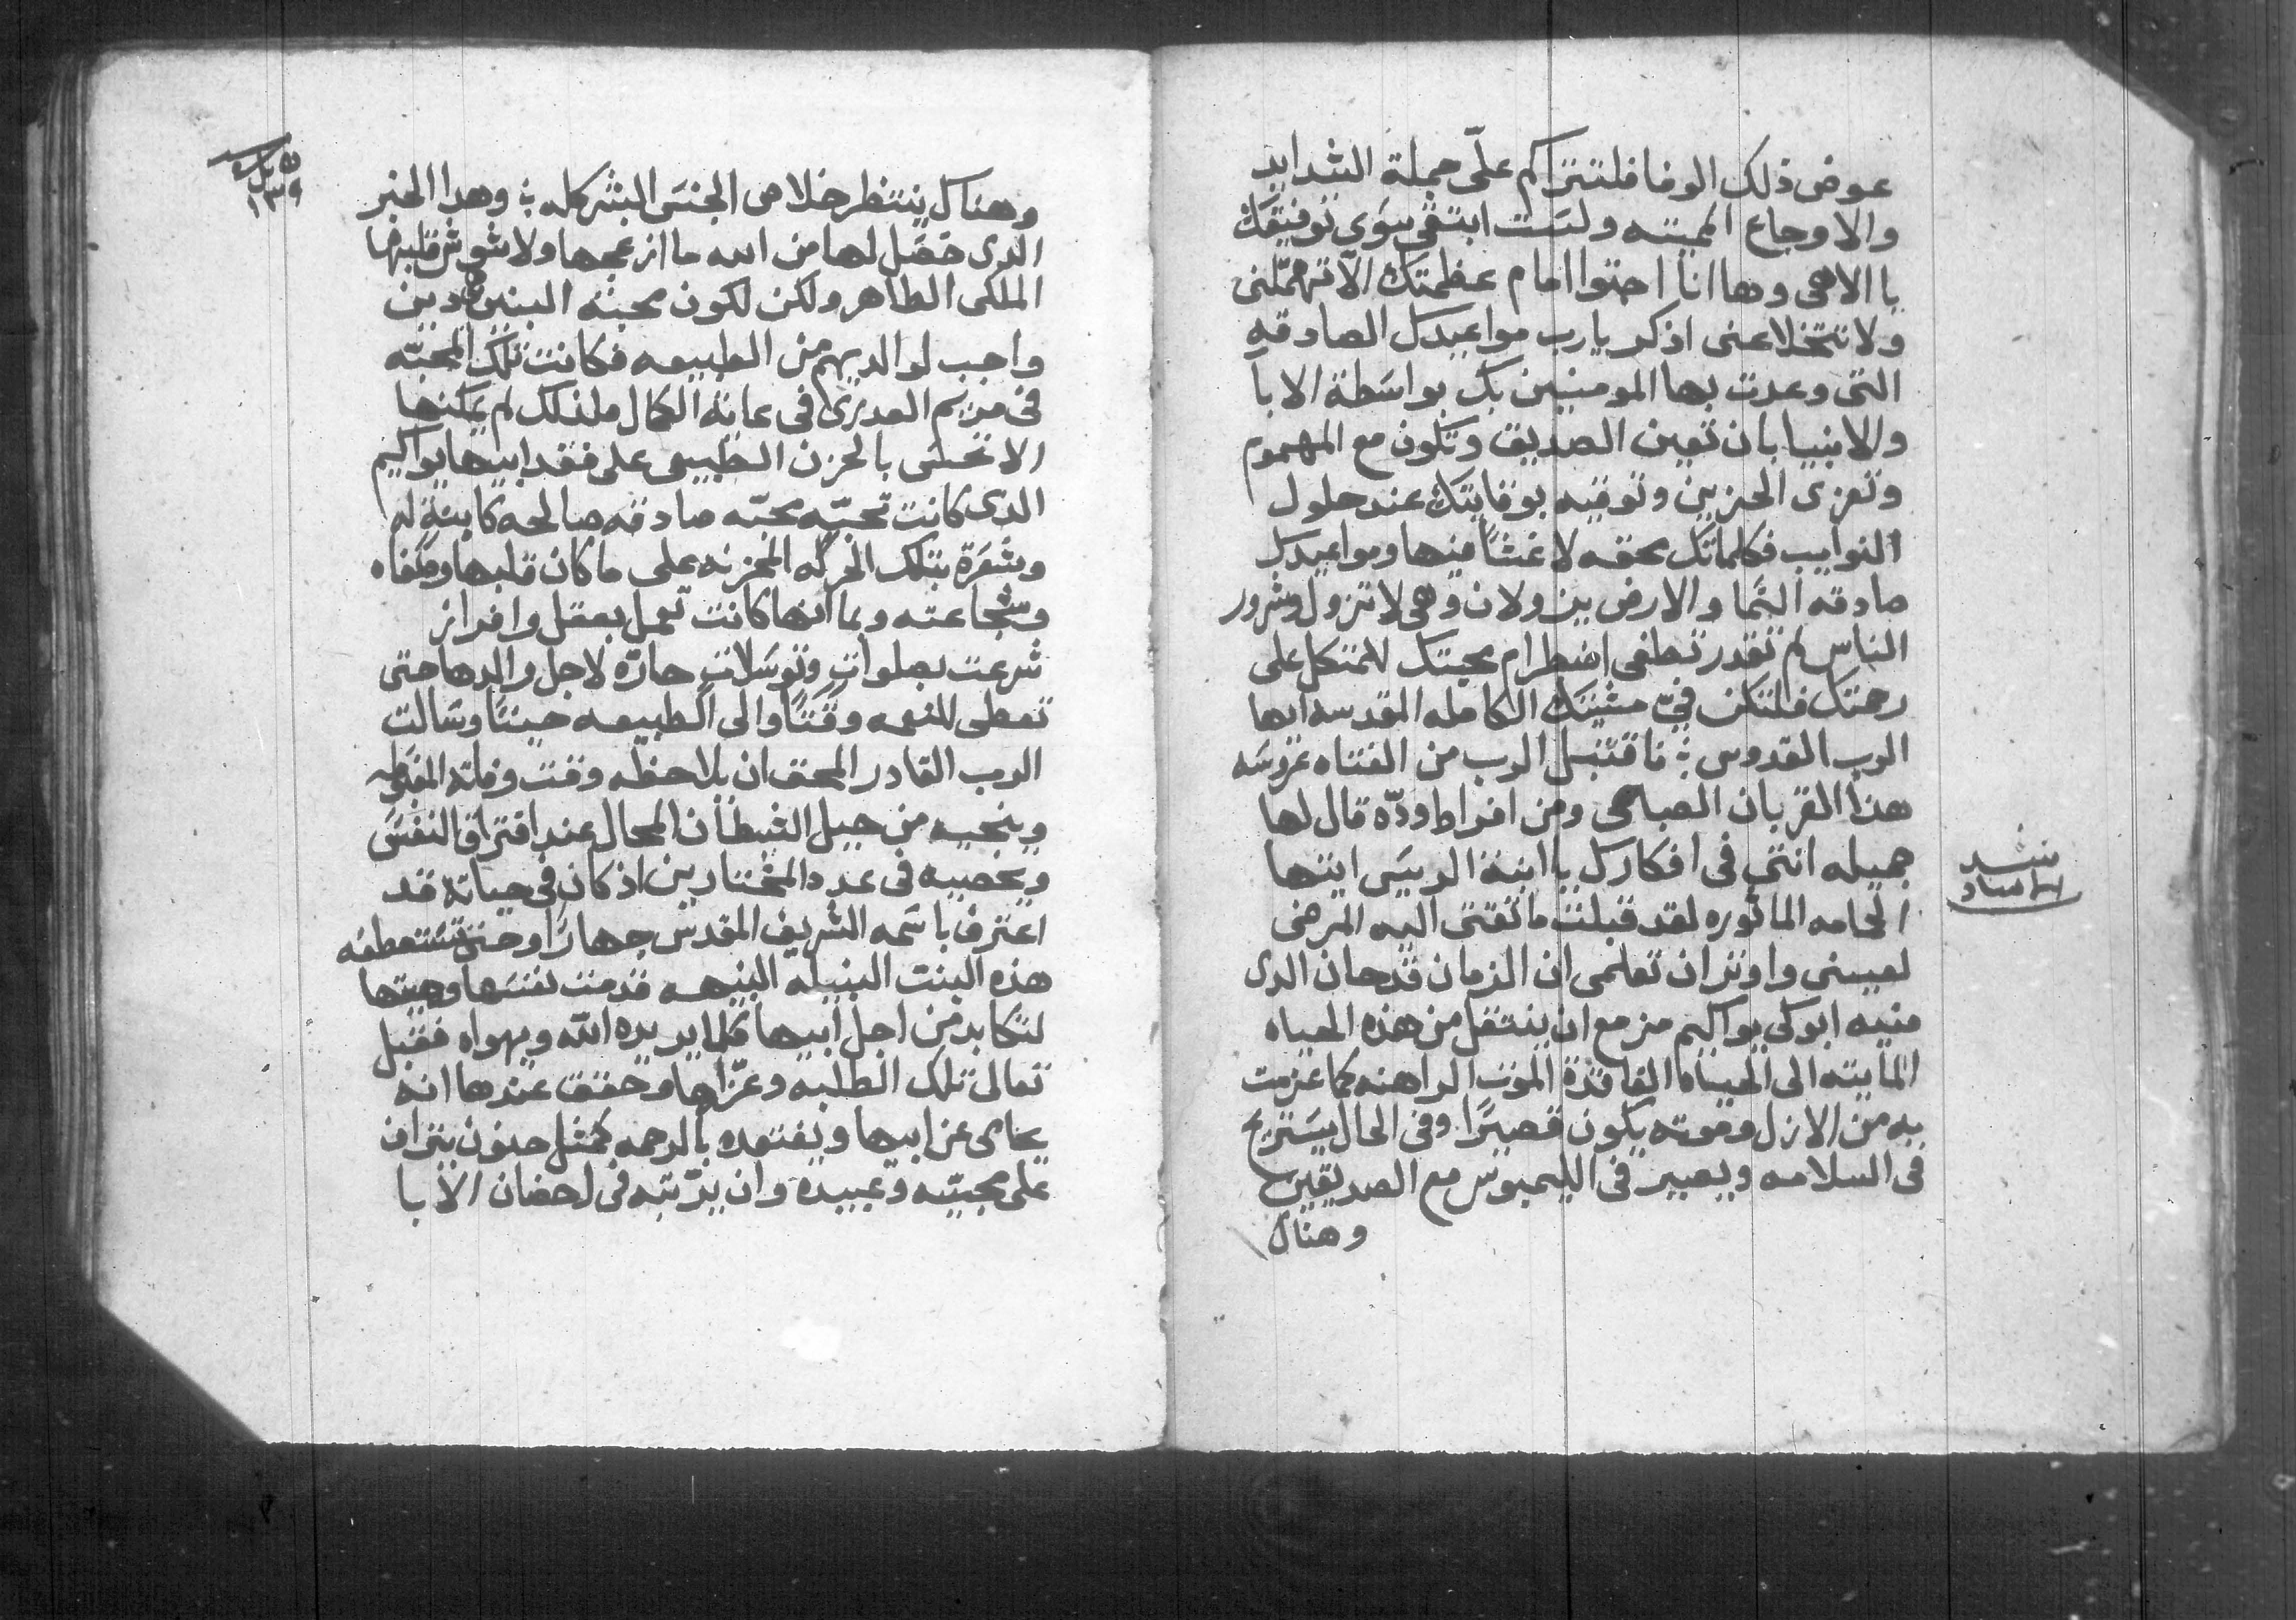 عوض ذلك الوفا فلتتراكم علّى جملة الشدايد
والاوجاع المميته ولست ابتغى سوى توفيقك
يا الاهى وها انا اجتوا امام عظمتك الّا تهمّلنى
ولا تتخلا عنى اذكر يا رب مواعيدك الصادقه
التى وعدت بها المومنين بك بواسطة الابا
والانبيا بان تعين الصديق وتكون مع المهموم
وتعزى الحزين وتوقيه بوقايتك عند حلول
النوايب فكلماتك محقه لا غشاً فيها ومواعيدك
صادقه السّما والارض يزولان وهى لا تزول وشرور
الناس لم تقدر تطفى اضطرام محبتك للمتكل على
رحمتك فلتكن فىّ مشيتك الكامله المقدسه ايها
الرب القدوس ؛ فاقتبل الرب من الفتاه عروسه
هذا القربان الصباحى ومن افراط ودّه قال لها
جميله انتى فى افكارك يا ابنة الرييس ايتها
الحمامه الماثوره لقد قبلت ما تقتى اليه المرضى
لعينى واوثر ان تعلمى ان الزمان قد حان الدى
منيه ابوكى يواكيم مزمع ان ينتقل من هذه الحياه
المايته الى الحياه الفاقدة الموت الراهنه كما عزمت
به من الازل وموته يكون قصيرًا وفى الحال يستريح
فى السلامه ويصير فى الليمبوس مع الصديقين
وهناك
وهناك ينتظر خلاص الجنس البشر كله ؛ وهدا الخبر
الدى حصّل لها من الله ما ازعجها ولا شوش قلبها
الملكى الطاهر ولكن لكون محبة البنين دين
واجب لوالديهم من الطبيعه فكانت تلك المحبّه
فى مريم العدرى فى غاية الكمال فلذلك لم يمكنها
الا تحسّى بالحزن الطبيعى على فقد ابيها يواكيم
الدى كانت تحبّه محبّه صادقه صالحه كابنة له
وشعَرة بتلك الحركه المحزنه على ما كان قلبها
وشجاعته وبما انها كانت تعمل بعقل وافراز
شرعت بصلوات وتوسلات حارّه لاجل والدها حتى
تعطى للنعمه وقتًا والى الطبيعه حينًا وسَالت
الرب القادر المحق ان يلاحظه وقت وفاته
وينجيه من حيل الشيطان المحال عند افتراق النفسَ
ويحصيه فى عدد المختارين اذ كان فى حياته قد
اعترف باسَمه الشريف المقدس جهارًا وحتى تستعطفه
هذه البنت النبيله النبيهه قدمت نفسَها وحبتها
لتكابد من اجل ابيها كلما يريده اللّه ويهواه فقبل
تعالى تلك الطلبه وعزّاها وحقق عندها انه
يحامى عن ابيها ويفتقده بالرحمه كمثل حنون يتراف
على محبيّه وعبيده وان يرّتبه فى احضان الابا
١٣٩